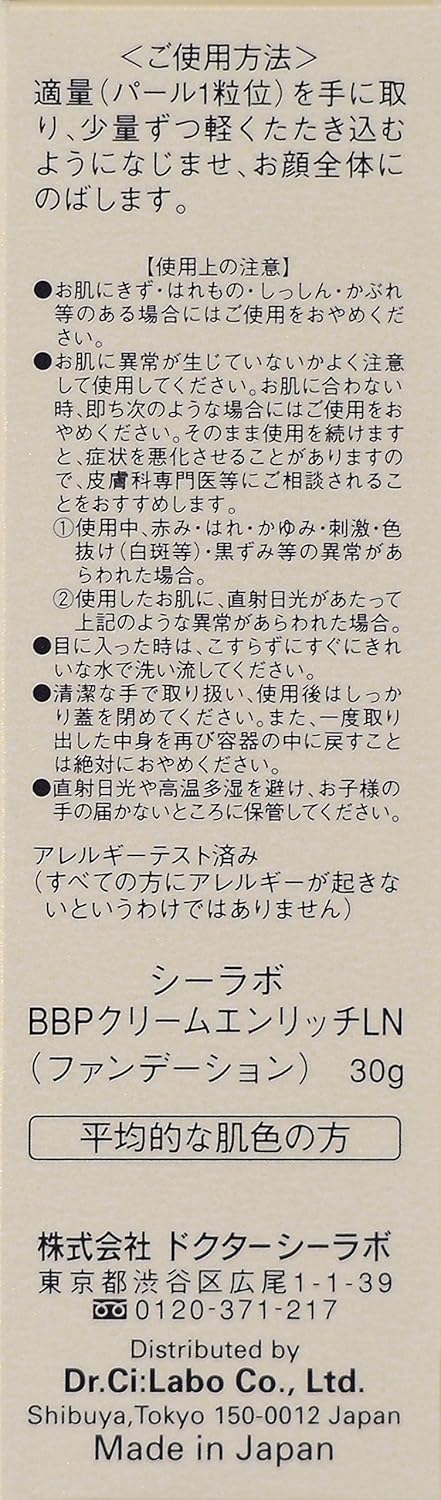 ＜ご使用方法＞
適量(パール1粒位)を手に取
り、少量ずつ軽くたたき込む
ようになじませ、お顔全体に
のばします。
【使用上の注意】
●お肌にきず・はれもの・しっしん・かぶれ
等のある場合にはご使用をおやめくだ
さい。
●お肌に異常が生じていないかよく注意
して使用してください。お肌に合わない
時、即ち次のような場合にはご使用をお
やめください。そのまま使用を続けます
と、症状を悪化させることがありますの
で、皮膚科専門医等にご相談されるこ
とをおすすめします。
①使用中、赤み・はれ・かゆみ・刺激・色
抜け(白斑等)・黒ずみ等の異常があ
らわれた場合。
②使用したお肌に、直射日光があたって
上記のような異常があらわれた場合。
●目に入った時は、こすらずにすぐにきれ
いな水で洗い流してください。
●清潔な手で取り扱い、使用後はしっか
り蓋を閉めてください。また、一度取り
出した中身を再び容器の中に戻すこと
は絶対におやめください。
●直射日光や高温多湿を避け、お子様の
手の届かないところに保管してください。
アレルギーテスト済み
(すべての方にアレルギーが起きな
いというわけではありません)
シーラボ
BBPクリームエンリッチLN
(ファンデーション) 30g
平均的な肌色の方
株式会社 ドクターシーラボ
東京都渋谷区広尾1-1-39
0120-371-217
Distributed by
Dr.Ci:Labo Co., Ltd.
Shibuya,Tokyo 150-0012 Japan
Made in Japan